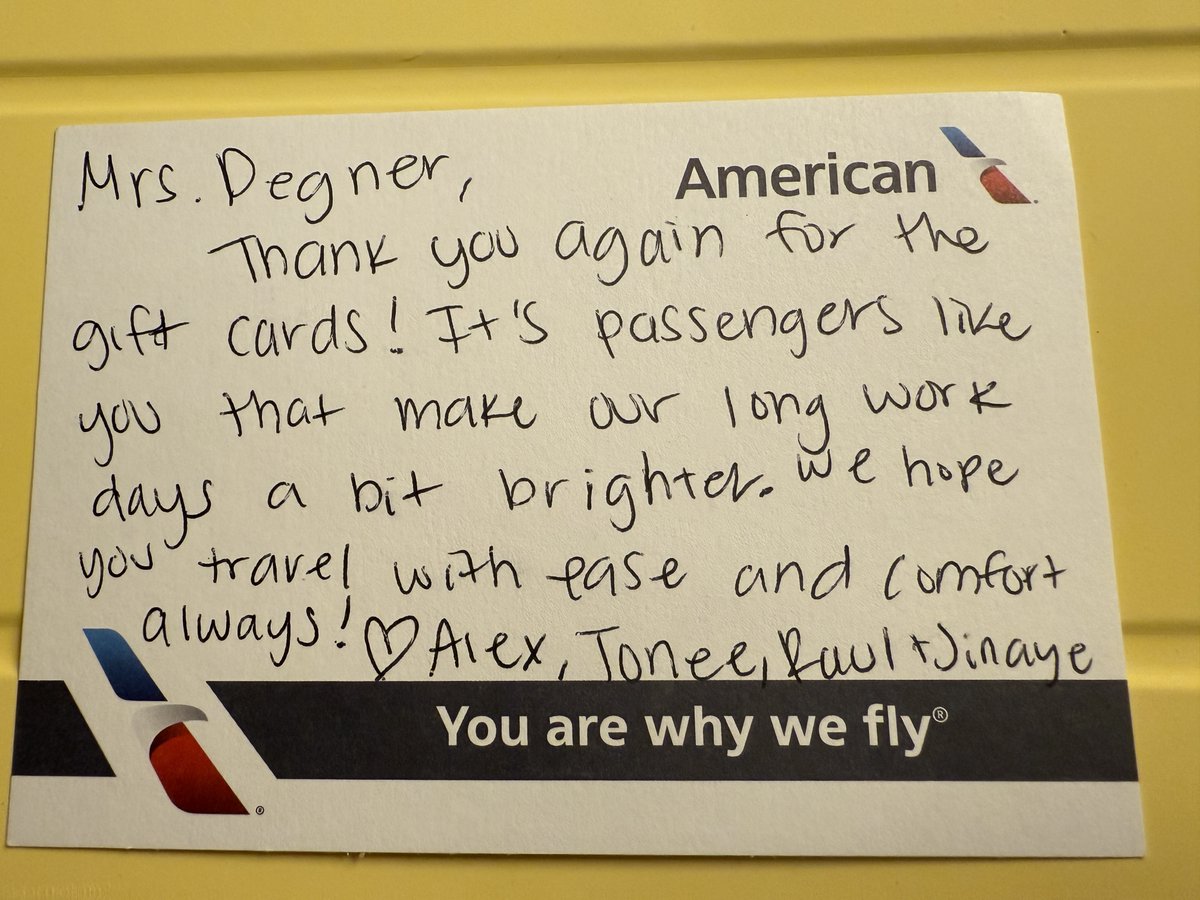 American
Mrs. Degner,
Thank you again for the
gift cards! It's passengers like
you that make our long work
days a bit brighter. We hope
you travel with ease and comfort
always! ♡ Alex, Jonee, Raul + Jinaye
You are why we fly®